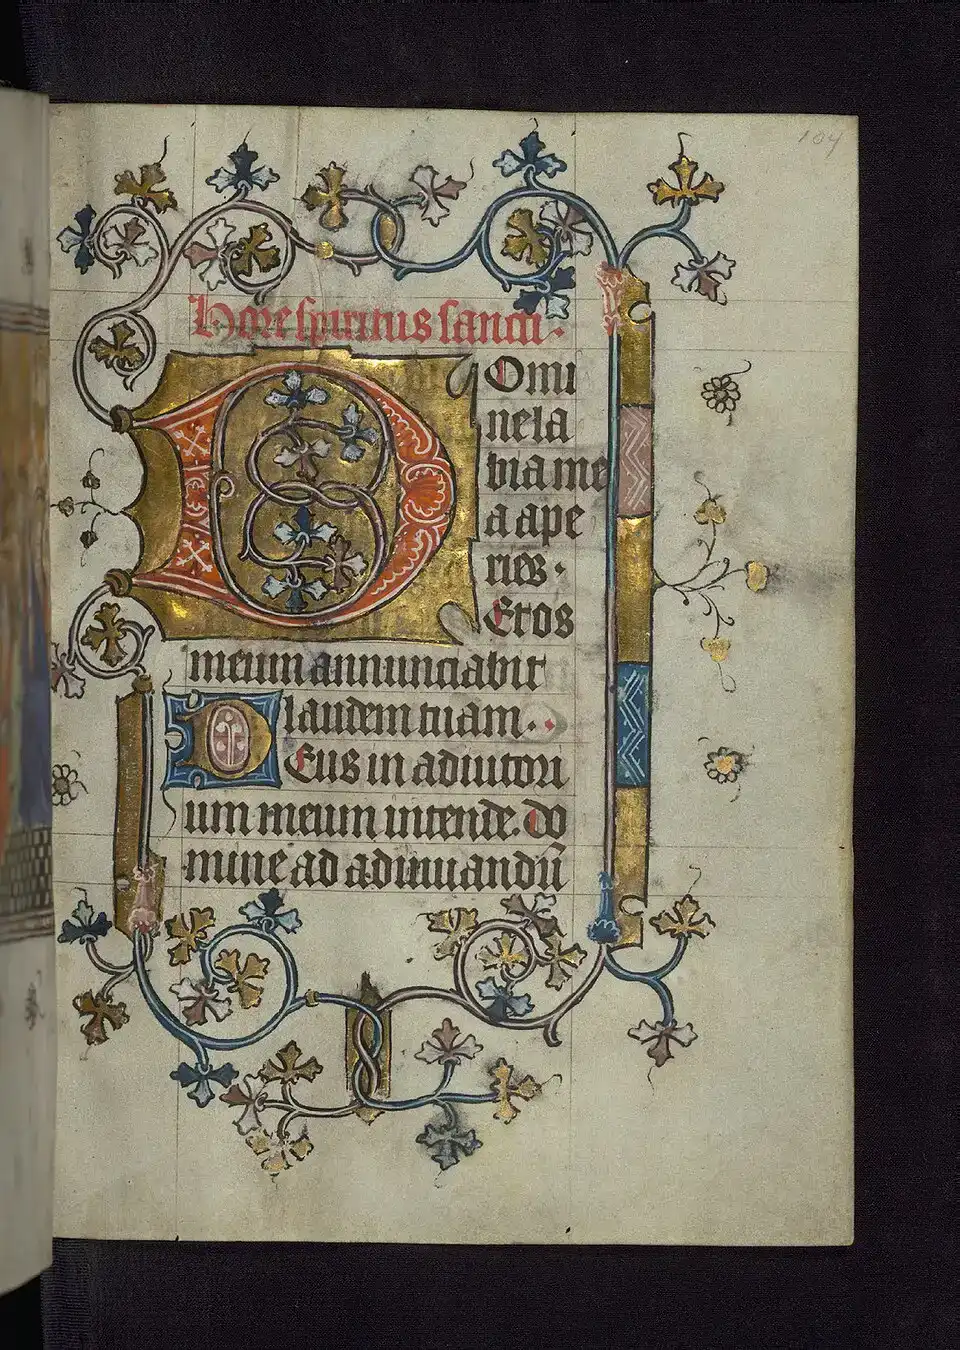 104
Hore spiritus sancti.
Domi
ne la
bia me
a ape
ries.
Et os
meum annunciabit
laudem tuam.
Deus in adiutori
um meum intende. do
mine ad adiuuandũ